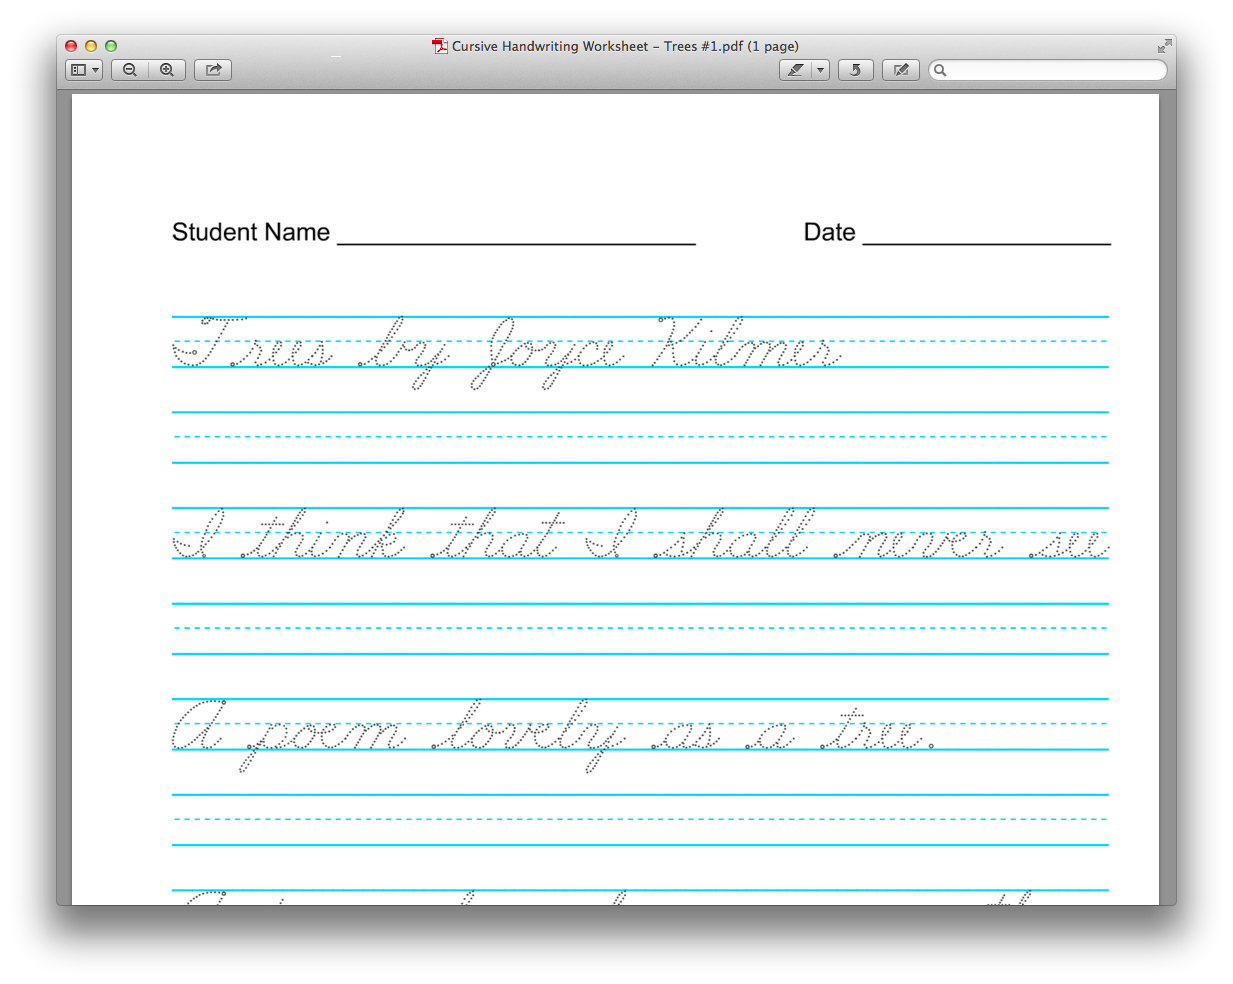 Cursive Handwriting Worksheet – Trees #1.pdf (1 page)
Student Name Date
Trees by Joyce Kilmer
I think that I shall never see
A poem lovely as a tree.